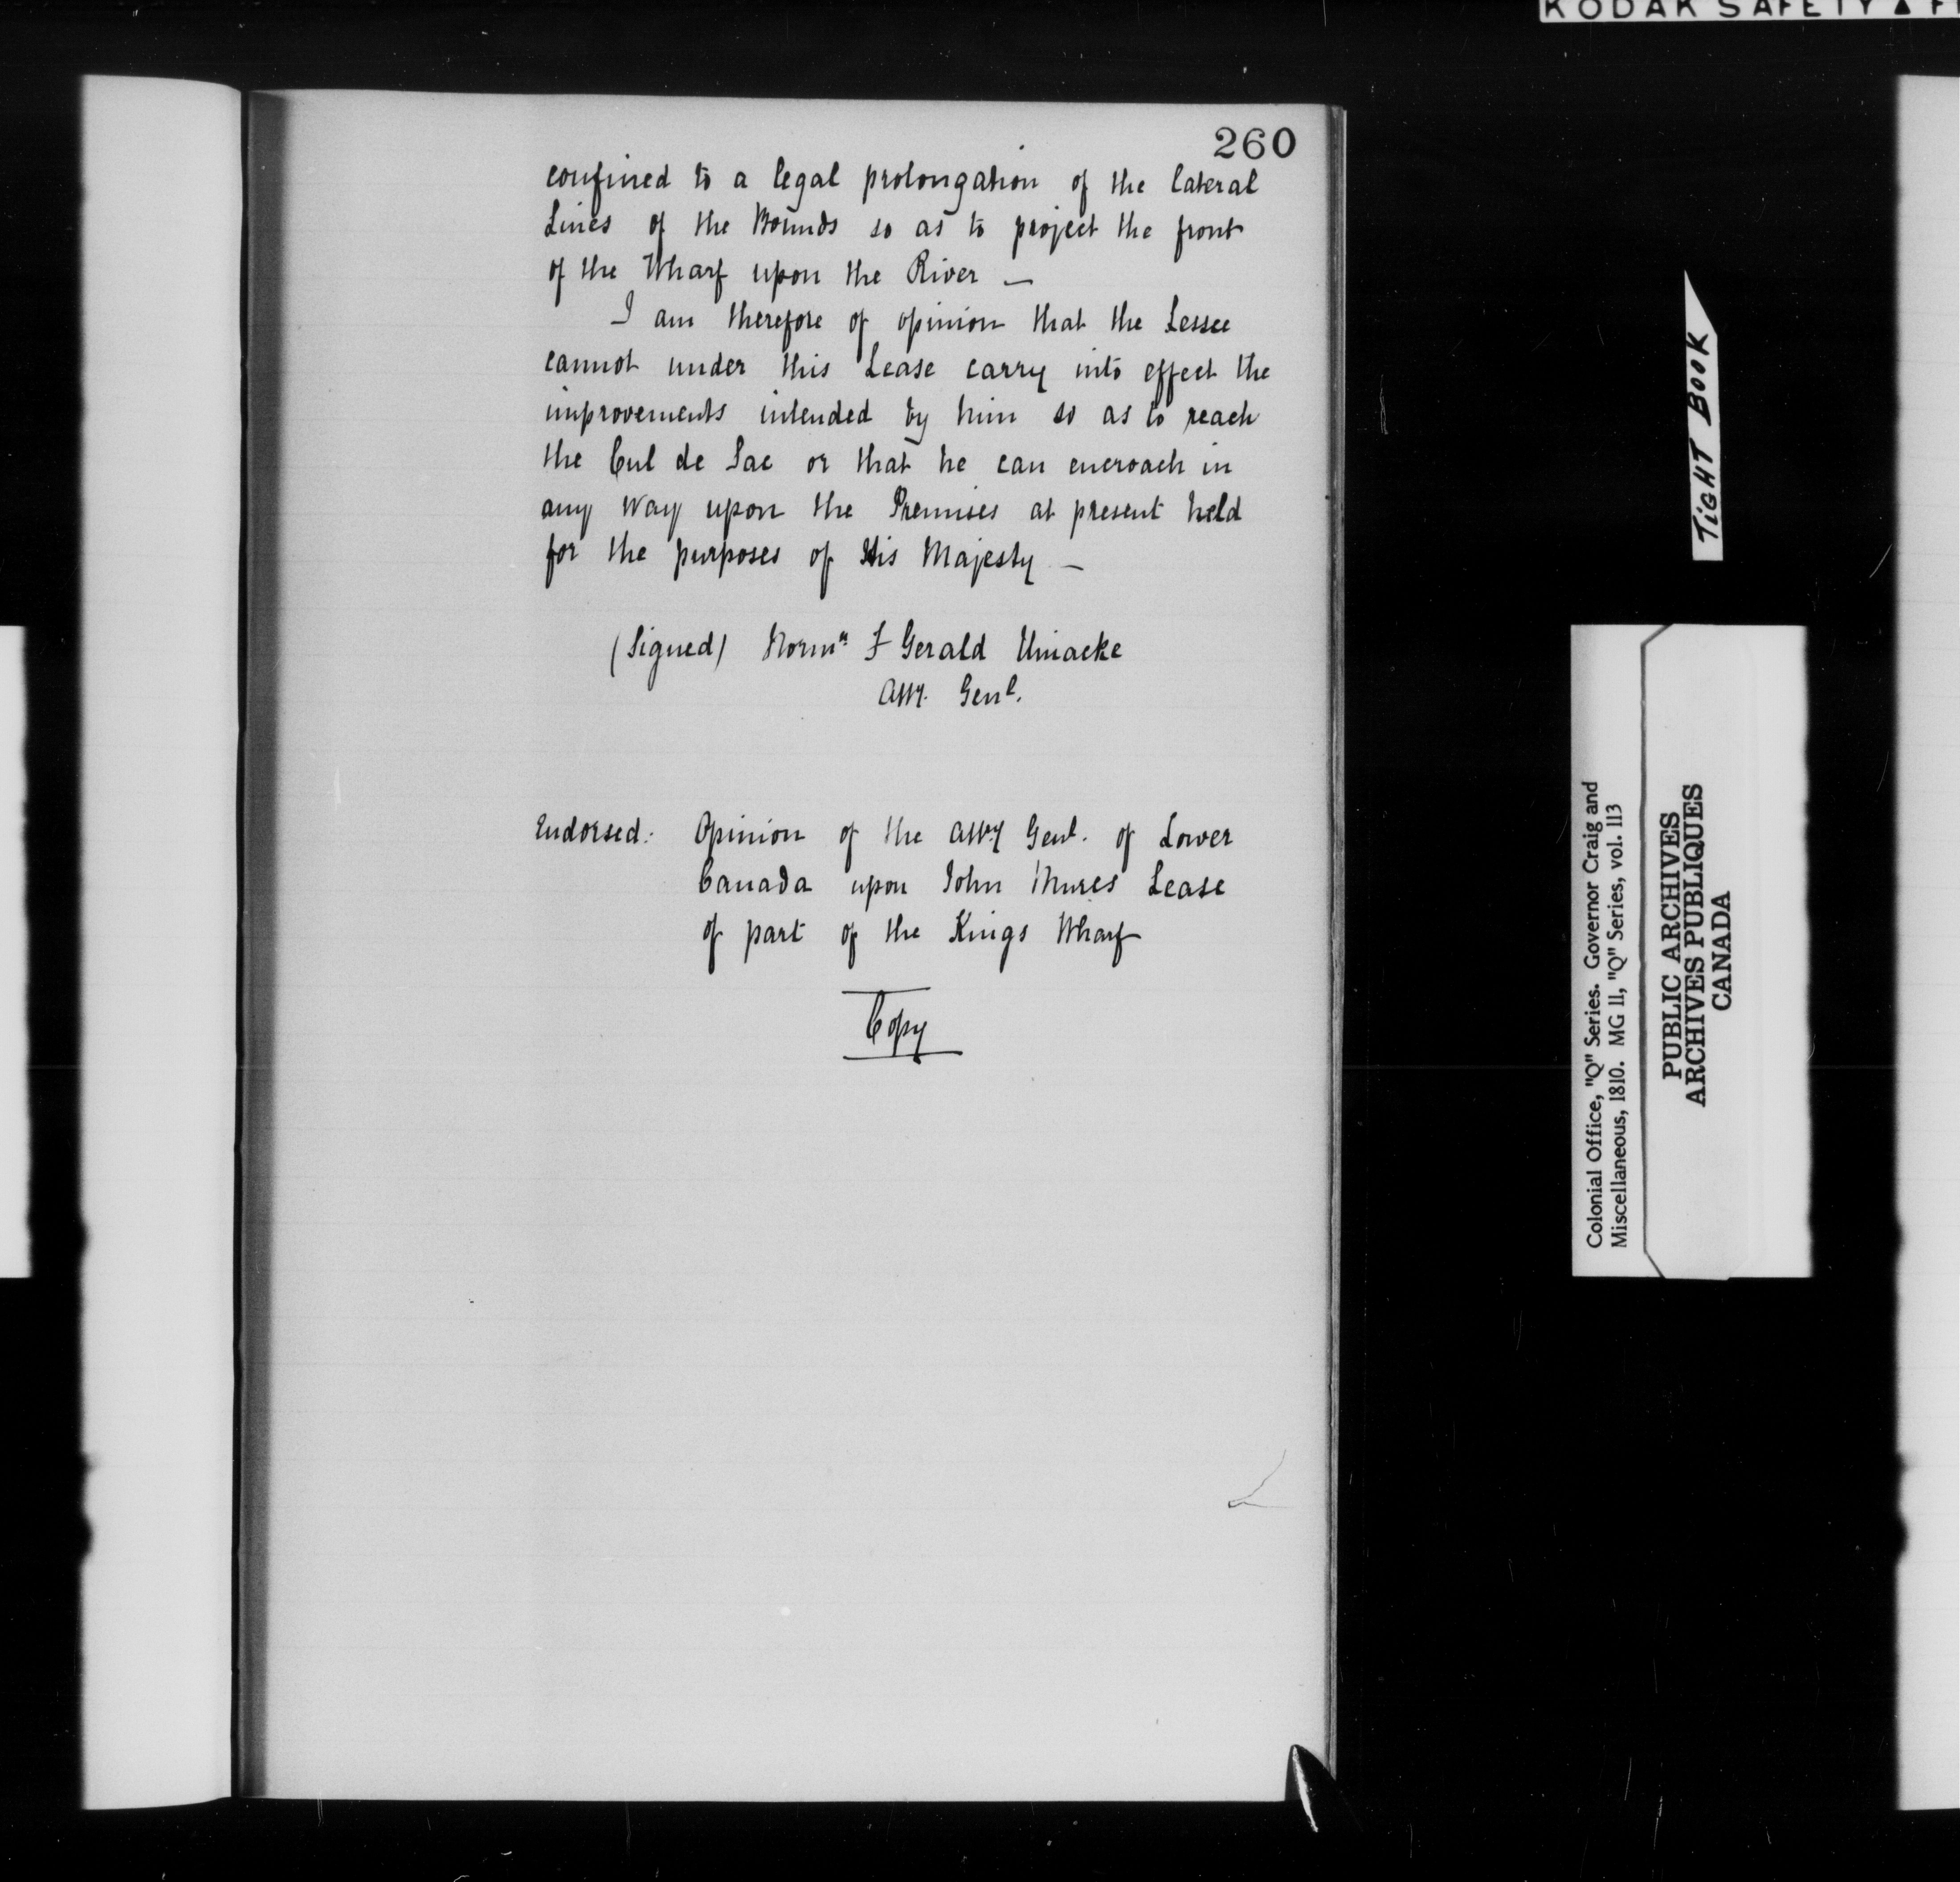 KODAK SAFETY ▲ F
260
confined to a legal prolongation of the lateral
Lines of the Bounds so as to project the front
of the Wharf upon the River —
I am therefore of opinion that the Lessee
cannot under this Lease carry into effect the
improvements intended by him so as to reach
the Cul de Sac or that he can encroach in
any way upon the Premises at present held
for the purposes of His Majesty —
(Signed) Normn F Gerald Uniacke
Atty. Genl.
Endorsed: Opinion of the Atty Genl. of Lower
Canada upon John Mures Lease
of part of the Kings Wharf
Copy
TIGHT BOOK
Colonial Office, "Q" Series. Governor Craig and
Miscellaneous, 1810. MG 11, "Q" Series, vol. 113
PUBLIC ARCHIVES
ARCHIVES PUBLIQUES
CANADA